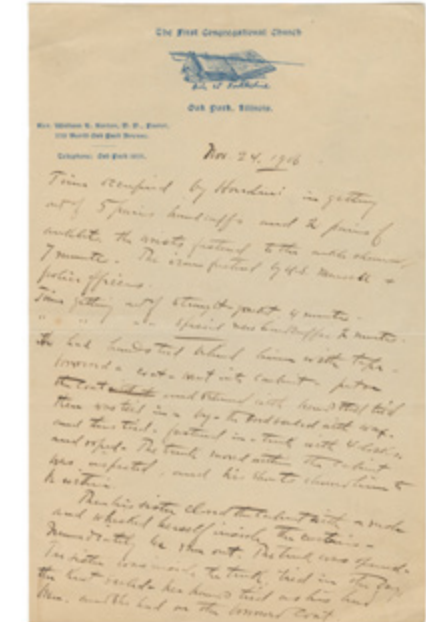 The First Congregational Church
Oak Park, Illinois.
Rev. William E. Barton, D. D., Pastor,
North Oak Park Avenue.
Telephone: Oak Park
Nov. 24, 1906
Time occupied by Houdini in getting
out of 5 pairs handcuffs and 2 pairs of
the wrists fastened to the
7 minutes. The irons fastened by
police officers.
Time getting out of straight-jacket 4 minutes.
" " " 1 pair new handcuffs 2 minutes.
He had hands tied behind him with tape.
borrowed a coat & went into cabinet & put on
the coat and returned with hands still tied
then was tied in a bag & the cord sealed with wax
and thus tied & fastened in a trunk with 4 locks
and roped. The trunk moved within the cabinet
was inspected and his shoes showed him to
be within.
Then his sister closed the cabinet with a
and whisked herself inside the curtains.
Immediately he ran out. The trunk was opened.
The sister was inside the trunk, tied in the bag
the knot sealed & her hands tied as his had
been, and she had on the borrowed coat.